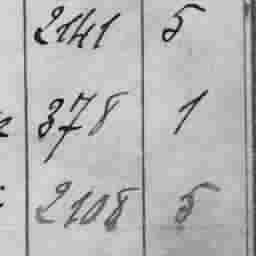 2141 5
378 1
2108 5